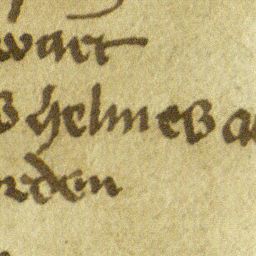 wart
s helmes a
rden